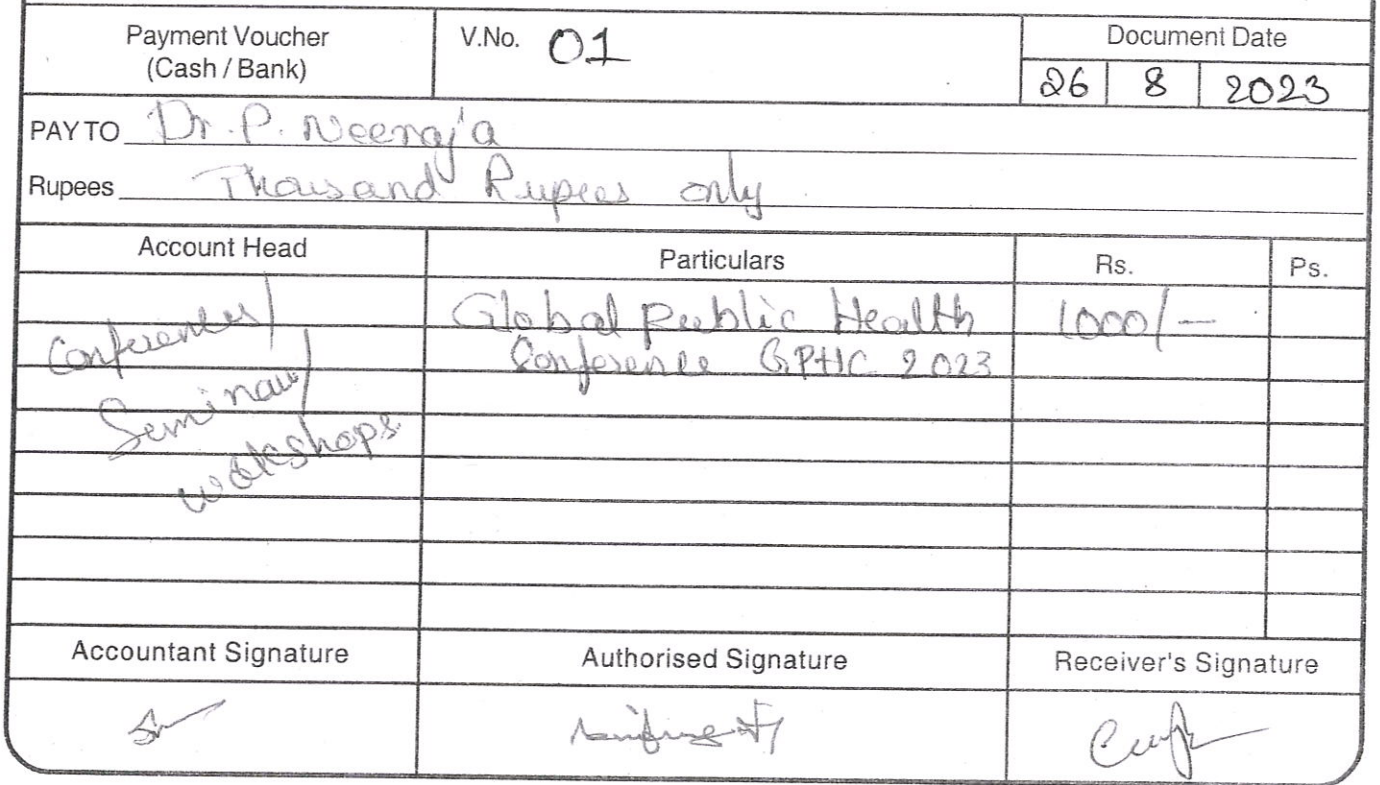 Payment Voucher
(Cash / Bank)
V.No. 01
Document Date
26 8 2023
PAY TO Dr. P. Neeraja
Rupees Thousand Rupees only
Account Head Particulars Rs. Ps.
Conferences/
Seminar/
workshops.
Global Public Health 1000/-
Conference GPHC 2023
Accountant Signature Authorised Signature Receiver's Signature